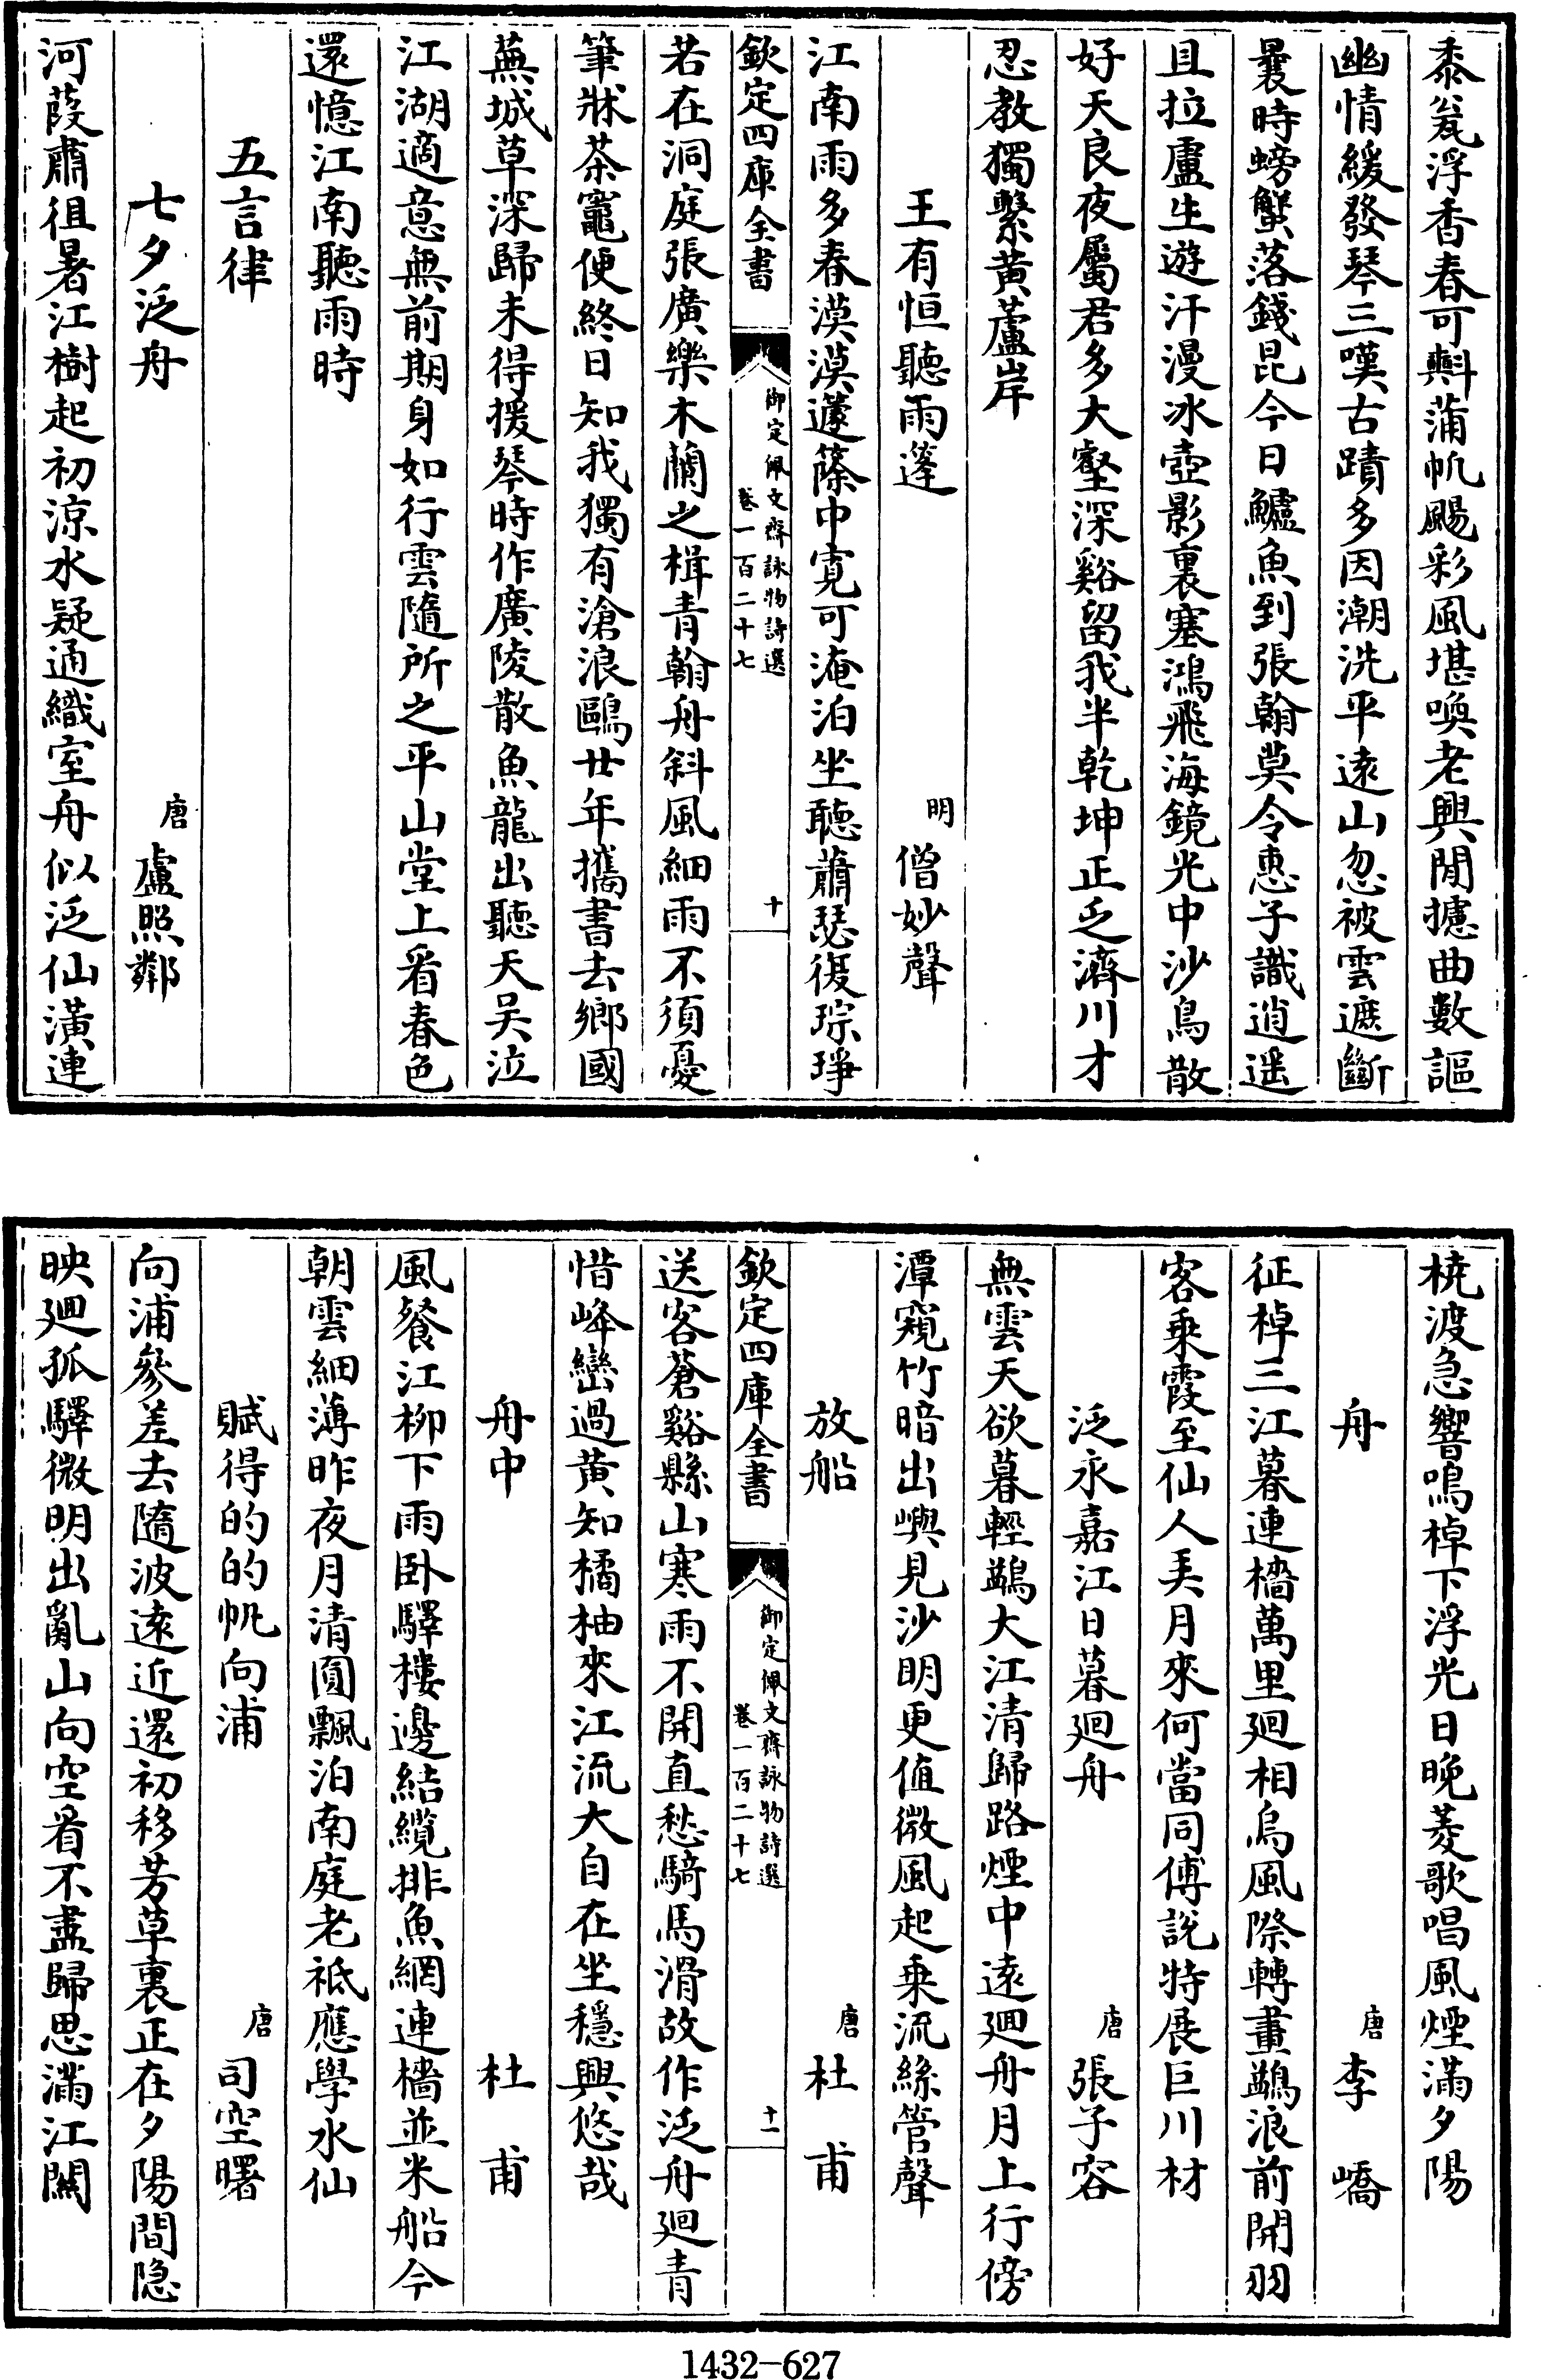 黍瓮浮香春可㪺蒲帆颺彩風堪喚老興閒攄曲數謳
幽情緩發琴三嘆古蹟多因潮洗平遠山忽被雲遮斷
曩時螃蟹落錢昆今日鱸魚到張翰莫令惠子識逍遥
且拉盧生遊汗漫冰壺影裏塞鴻飛海鏡光中沙鳥散
好天良夜屬君多大壑深谿留我半乾坤正乏濟川才
忍教獨繫黄蘆岸
王有恒聽雨篷
明僧妙聲
江南雨多春漠漠蘧篨中寛可淹泊坐聽蕭瑟復琮琤
欽定四庫全書
御定佩文齋詠物詩選
卷一百二十七
十
若在洞庭張廣樂木蘭之楫青翰舟斜風細雨不須憂
筆牀茶竈便終日知我獨有滄浪鷗廿年攜書去鄉國
蕪城草深歸未得援琴時作廣陵散魚龍出聽天吴泣
江湖適意無前期身如行雲隨所之平山堂上看春色
還憶江南聽雨時
五言律
七夕泛舟
唐盧照鄰
河葭肅徂暑江樹起初涼水疑通織室舟似泛仙潢連
橈渡急響鳴棹下浮光日晚菱歌唱風煙滿夕陽
舟
唐李嶠
征棹三江暮連檣萬里廻相烏風際轉畫鷁浪前開羽
客乘霞至仙人弄月來何當同傅説特展巨川材
泛永嘉江日暮廻舟
唐張子容
無雲天欲暮輕鷁大江清歸路煙中遠廻舟月上行傍
潭窺竹暗出嶼見沙明更值微風起乘流絲管聲
放船
唐杜甫
欽定四庫全書
御定佩文齋詠物詩選
卷一百二十七
十一
送客蒼谿縣山寒雨不開直愁騎馬滑故作泛舟廻青
惜峰巒過黄知橘柚來江流大自在坐穩興悠哉
舟中
杜甫
風餐江柳下雨卧驛樓邊結纜排魚網連檣並米船今
朝雲細薄昨夜月清圓飄泊南庭老祗應學水仙
賦得的的帆向浦
唐司空曙
向浦參差去隨波遠近還初移芳草裏正在夕陽間隐
映廻孤驛微明出亂山向空看不盡歸思滿江關
1432-627